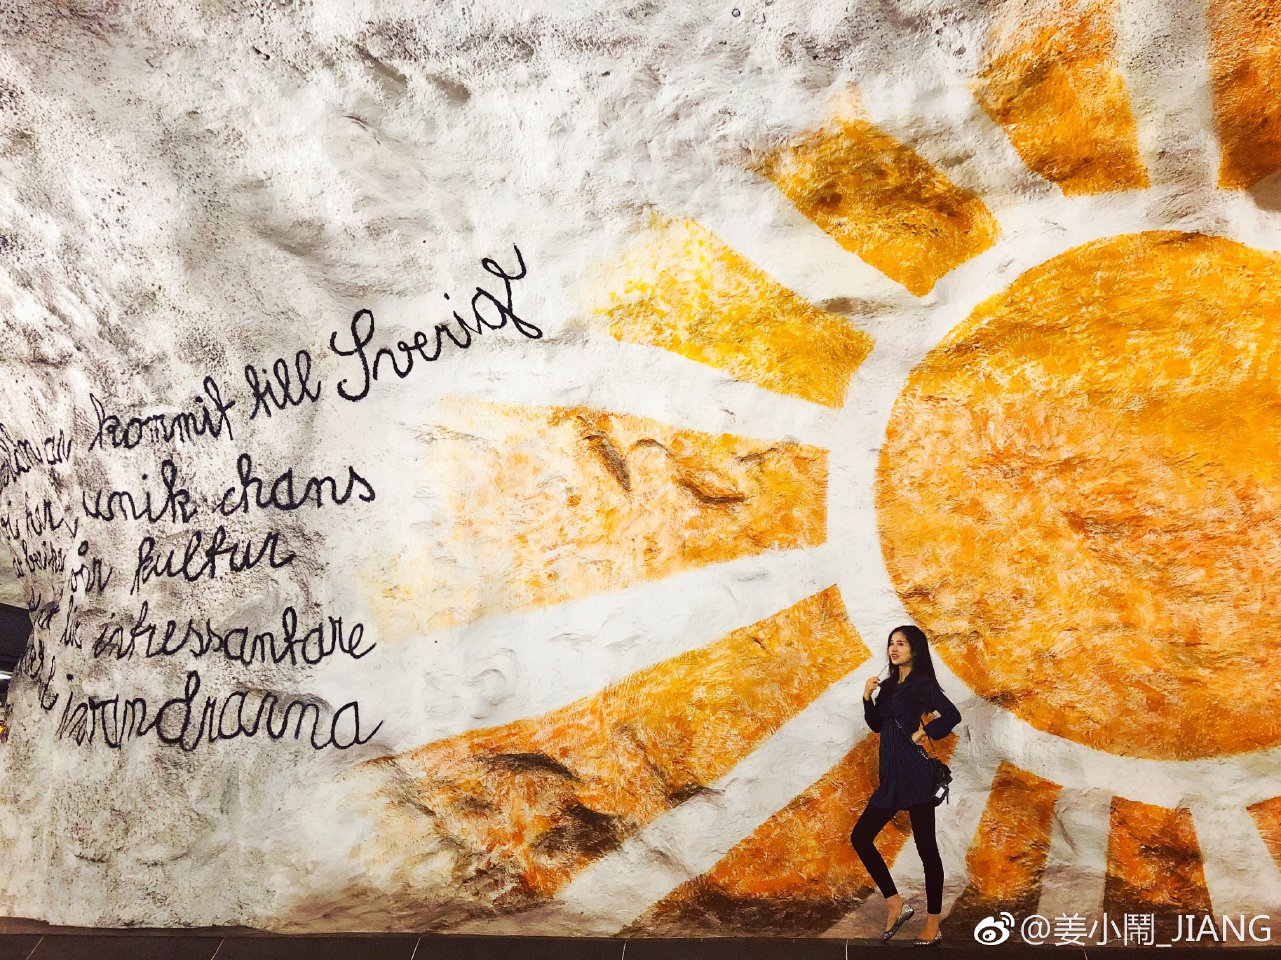 kommit till Sverige
unik chans
vår kultur
de intressantare
invandrarna
@姜小鬧_JIANG